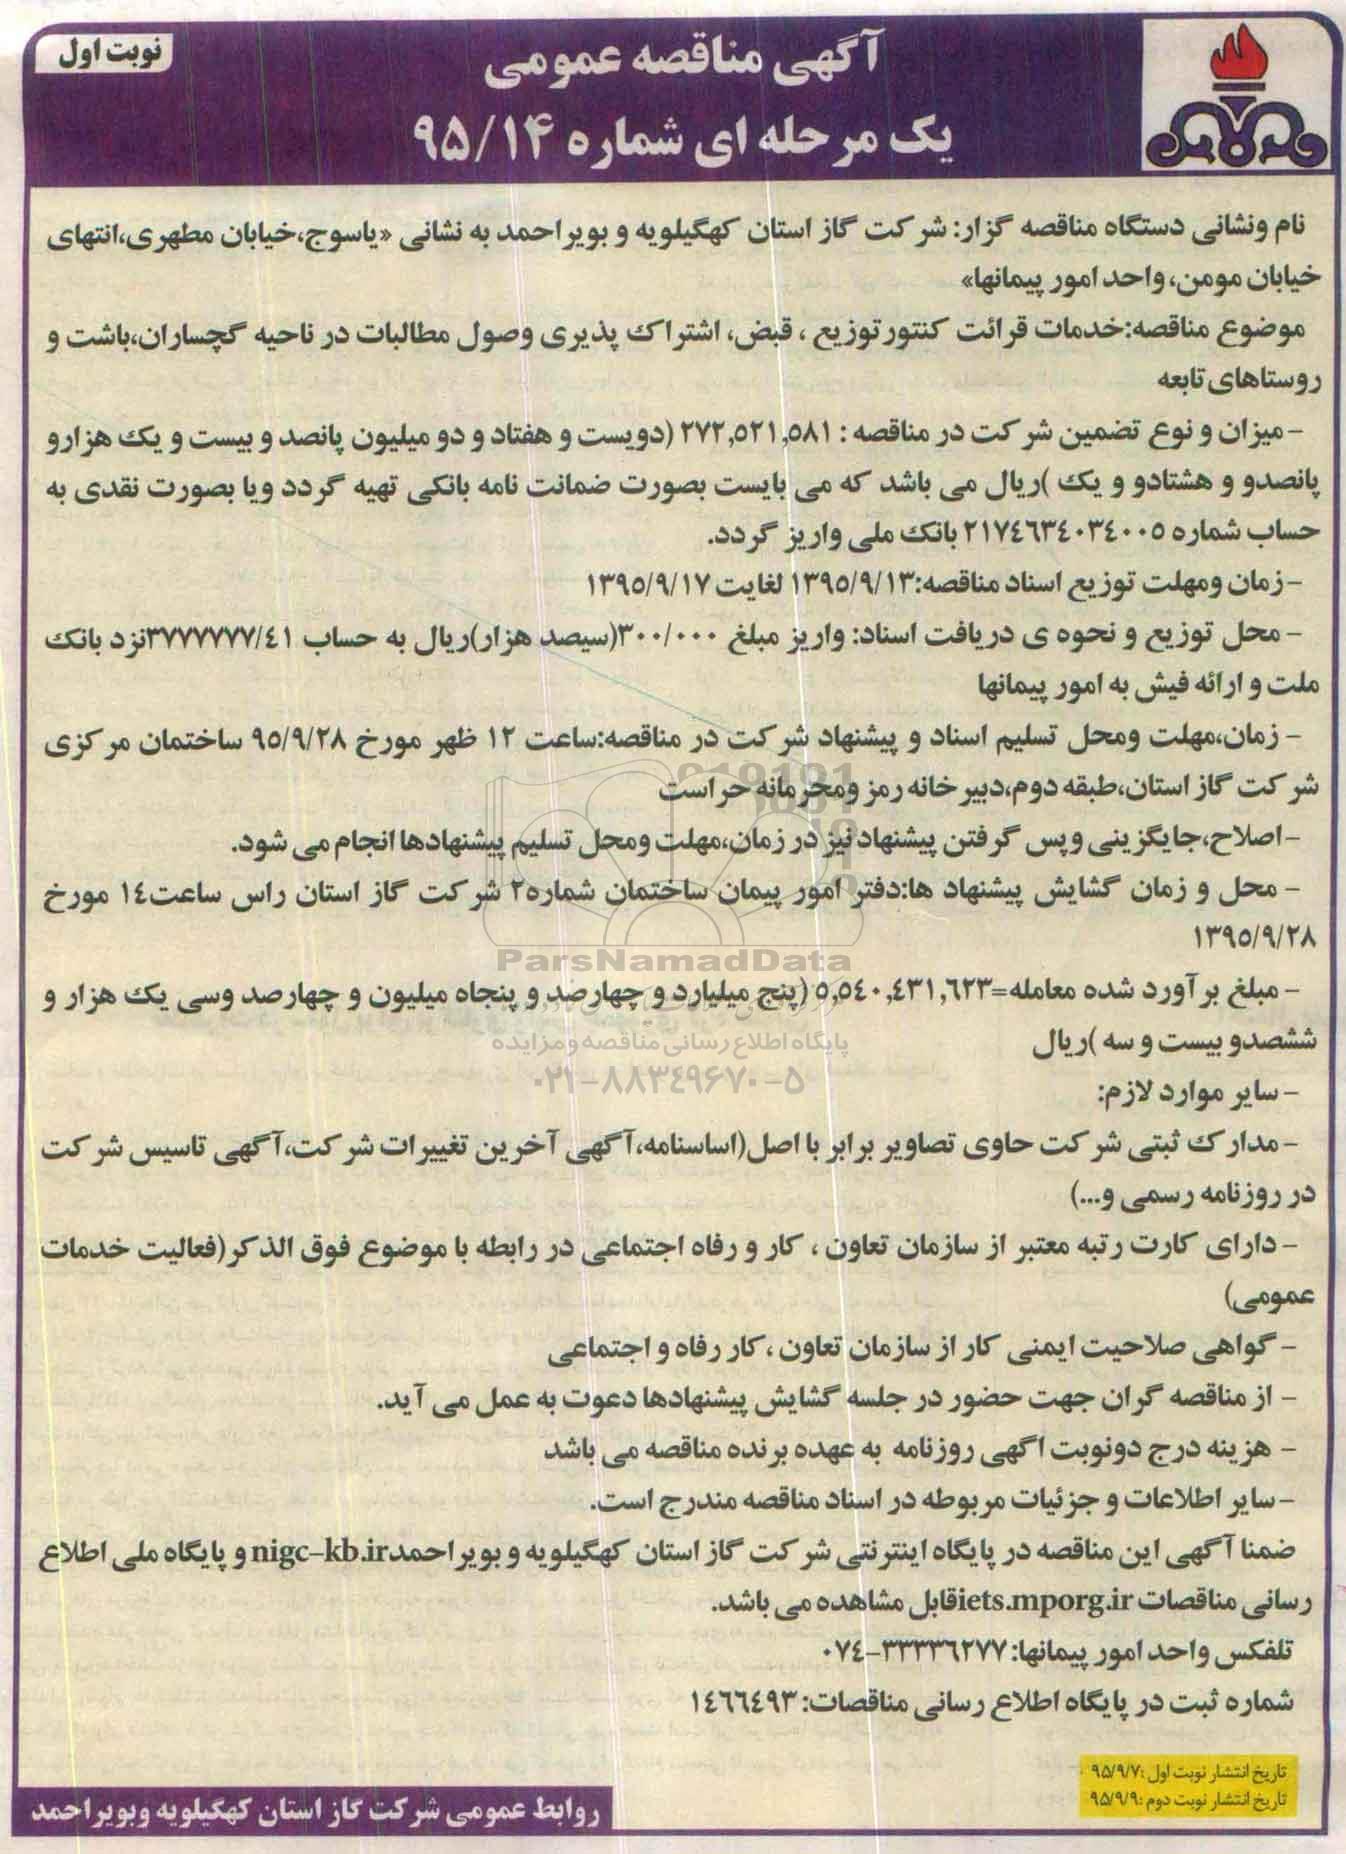 نوبت اول
آگهی مناقصه عمومی
یک مرحله ای شماره ۹۵/۱۴
نام ونشانی دستگاه مناقصه گزار: شرکت گاز استان کهگیلویه و بویراحمد به نشانی «یاسوج،خیابان مطهری،انتهای
خیابان مومن، واحد امور پیمانها»
موضوع مناقصه:خدمات قرائت کنتورتوزیع ، قبض، اشتراک پذیری وصول مطالبات در ناحیه گچساران،باشت و
روستاهای تابعه
- میزان و نوع تضمین شرکت در مناقصه : ۲۷۲,۵۲۱,۵۸۱ (دویست و هفتاد و دو میلیون پانصد و بیست و یک هزارو
پانصدو و هشتادو و یک )ریال می باشد که می بایست بصورت ضمانت نامه بانکی تهیه گردد ویا بصورت نقدی به
حساب شماره ۲۱۷٤٦۳٤۰۳٤۰۰۵ بانک ملی واریز گردد.
- زمان ومهلت توزیع اسناد مناقصه:۱۳۹۵/۹/۱۳ لغایت ۱۳۹۵/۹/۱۷
- محل توزیع و نحوه ی دریافت اسناد: واریز مبلغ ۳۰۰/۰۰۰(سیصد هزار)ریال به حساب ۳۷۷۷۷۷۷/٤۱نزد بانک
ملت و ارائه فیش به امور پیمانها
- زمان،مهلت ومحل تسلیم اسناد و پیشنهاد شرکت در مناقصه:ساعت ۱۲ ظهر مورخ ۹۵/۹/۲۸ ساختمان مرکزی
شرکت گاز استان،طبقه دوم،دبیرخانه رمز ومحرمانه حراست
- اصلاح،جایگزینی وپس گرفتن پیشنهاد نیز در زمان،مهلت ومحل تسلیم پیشنهادها انجام می شود.
- محل و زمان گشایش پیشنهاد ها:دفتر امور پیمان ساختمان شماره۲ شرکت گاز استان راس ساعت۱٤ مورخ
۱۳۹۵/۹/۲۸
ParsNamadData
- مبلغ برآورد شده معامله=۵,۵٤۰,٤۳۱,٦۲۳ (پنج میلیارد و چهارصد و پنجاه میلیون و چهارصد وسی یک هزار و
ششصدو بیست و سه )ریال
پایگاه اطلاع رسانی مناقصه ومزایده
۰۲۱-۸۸۳٤۹٦۷۰-۵
- سایر موارد لازم:
- مدارک ثبتی شرکت حاوی تصاویر برابر با اصل(اساسنامه،آگهی آخرین تغییرات شرکت،آگهی تاسیس شرکت
در روزنامه رسمی و...)
- دارای کارت رتبه معتبر از سازمان تعاون ، کار و رفاه اجتماعی در رابطه با موضوع فوق الذکر(فعالیت خدمات
عمومی)
- گواهی صلاحیت ایمنی کار از سازمان تعاون ، کار رفاه و اجتماعی
- از مناقصه گران جهت حضور در جلسه گشایش پیشنهادها دعوت به عمل می آید.
- هزینه درج دونوبت آگهی روزنامه به عهده برنده مناقصه می باشد
- سایر اطلاعات و جزئیات مربوطه در اسناد مناقصه مندرج است.
ضمنا آگهی این مناقصه در پایگاه اینترنتی شرکت گاز استان کهگیلویه و بویراحمدnigc-kb.ir و پایگاه ملی اطلاع
رسانی مناقصات iets.mporg.irقابل مشاهده می باشد.
تلفکس واحد امور پیمانها: ۳۳۳۳٦۲۷۷-۰۷٤
شماره ثبت در پایگاه اطلاع رسانی مناقصات: ۱٤٦٦٤۹۳
تاریخ انتشار نوبت اول :۹۵/۹/۷
تاریخ انتشار نوبت دوم :۹۵/۹/۹
روابط عمومی شرکت گاز استان کهگیلویه وبویراحمد